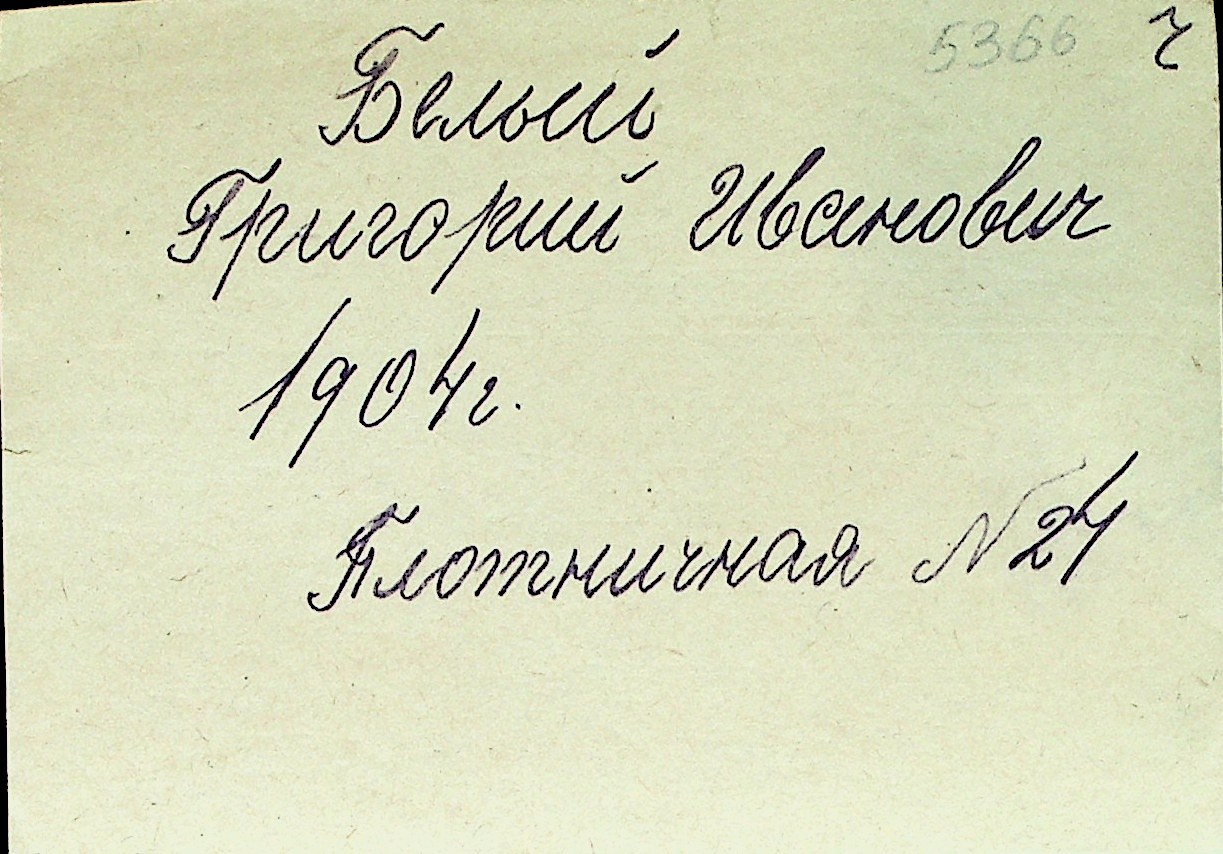 5366 ч
Белый
Григорий Иванович
1904г.
Плотничная №24